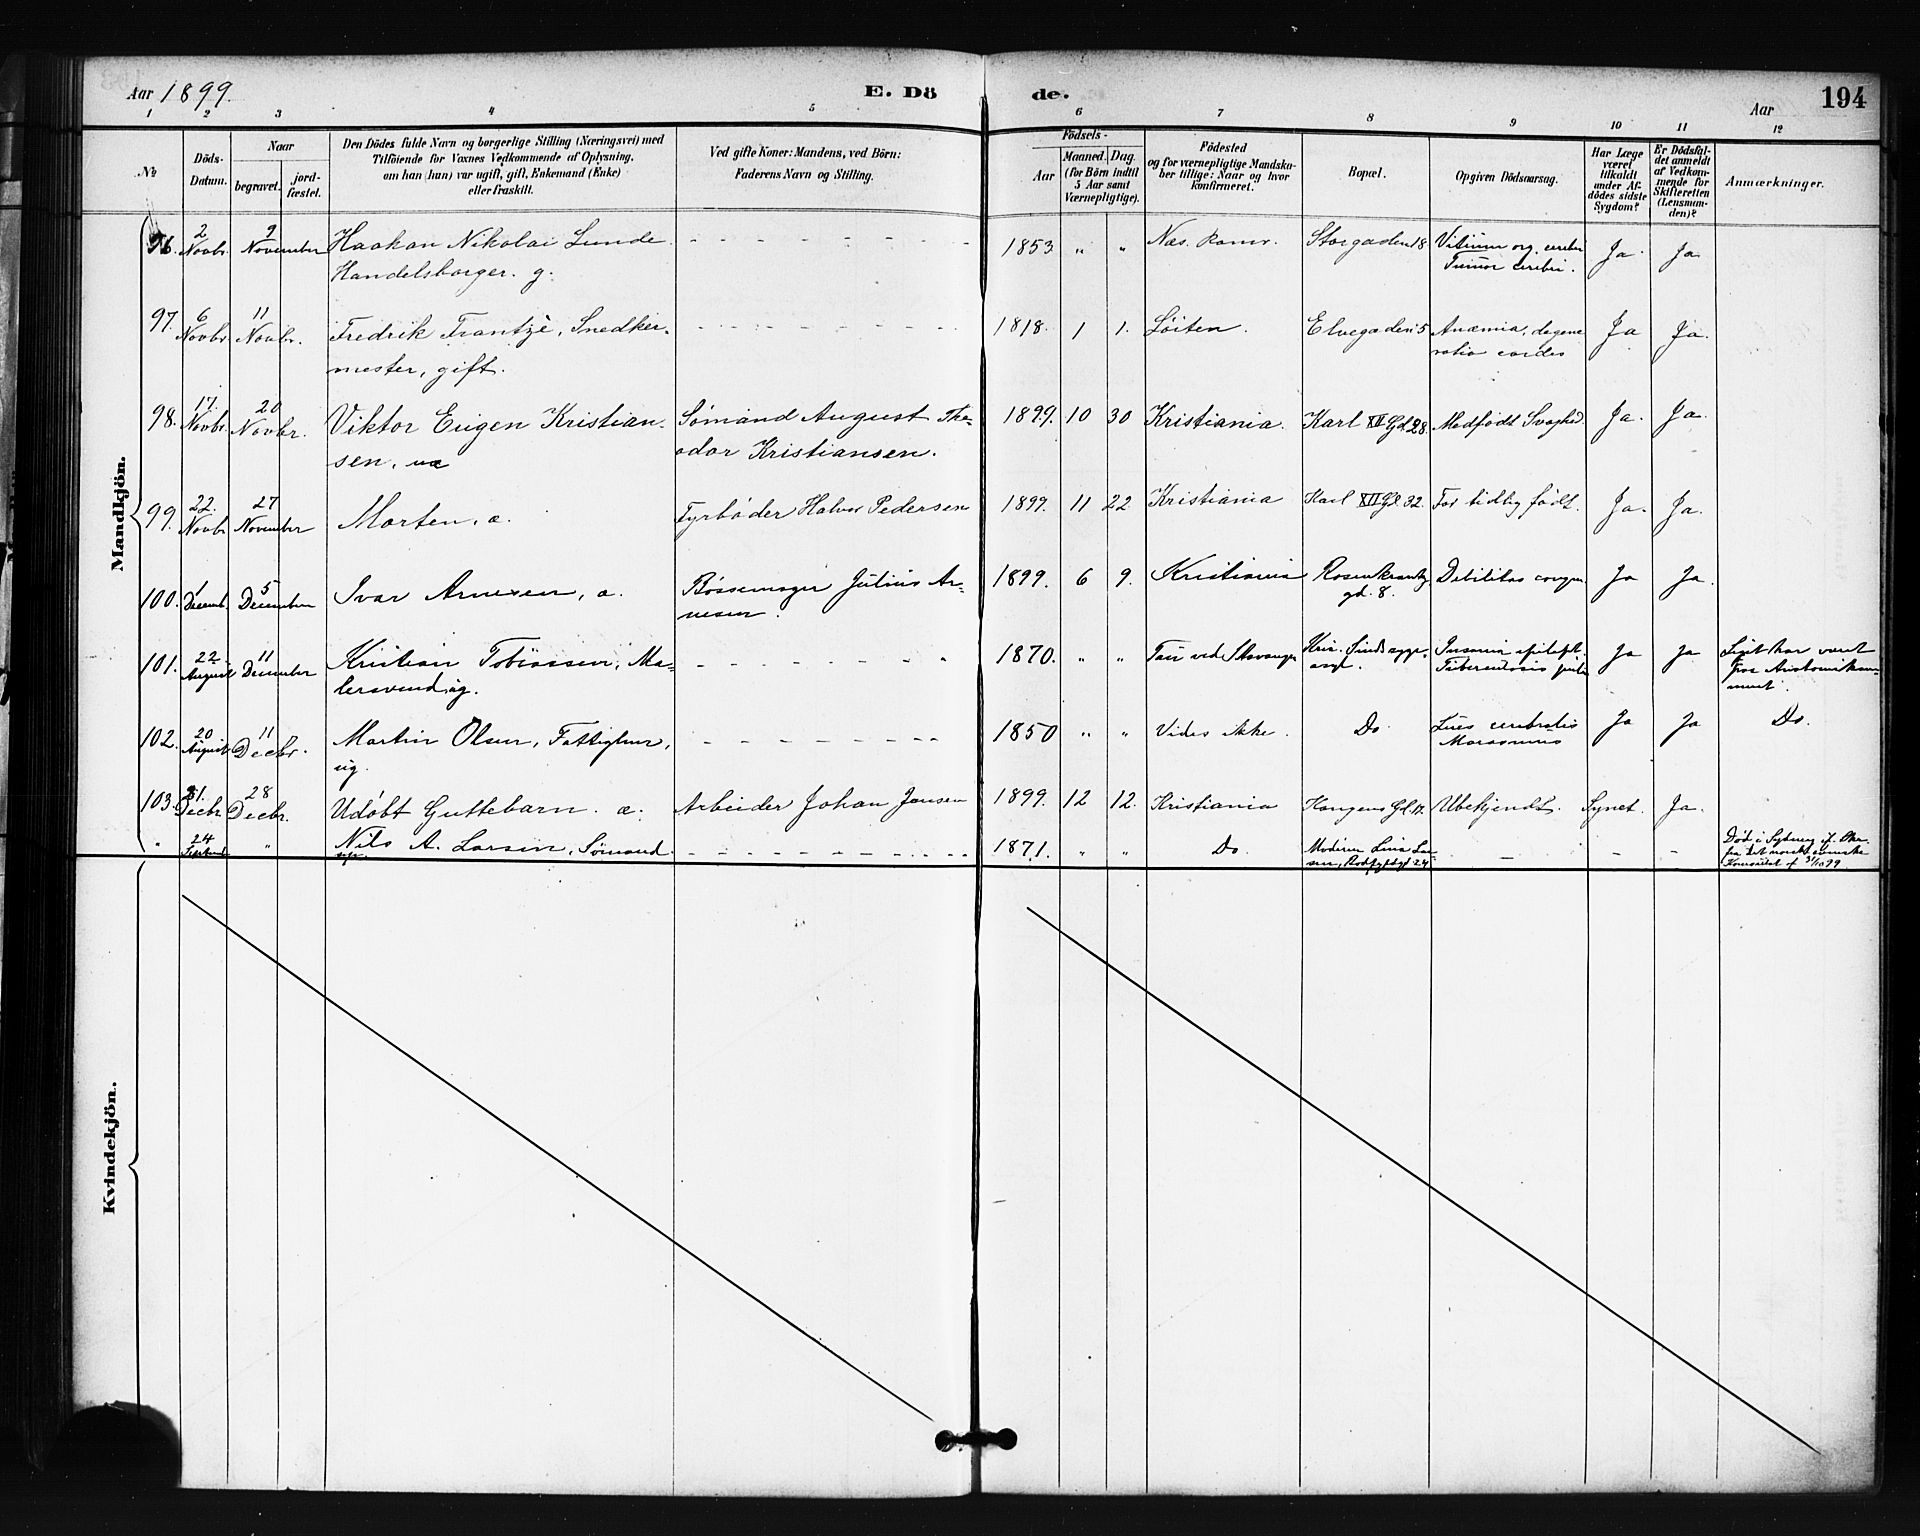 Aar 1899. E. Dö de. Aar 194
1 2 3 4 5 6 7 8 9 10 11 12
№
Döds-
Datum.
Naar
begravet.
jord-
fæstet.
Den Dödes fulde Navn og borgerlige Stilling (Næringsvei) med
Tilföiende for Voxnes Vedkommende af Oplysning,
om han (hun) var ugift, gift, Enkemand (Enke)
eller fraskilt.
Ved gifte Koner: Mandens, ved Börn:
Faderens Navn og Stilling.
Födsels-
Aar
Maaned. Dag.
(for Börn indtil
5 Aar samt
Værnepligtige).
Födested
og for værnepligtige Mandska-
ber tillige: Naar og hvor
konfirmeret.
Bopæl.
Opgiven Dödsaarsag.
Har Læge
været
tilkaldt
under Af-
dödes sidste
Sygdom?
Er Dödsfal-
det anmeldt
af Vedkom-
mende for
Skifteretten
(Lensman-
den)?
Anmærkninger.
Mandkjön.
96. 2 Novbr. 9 November Haakon Nikolai Lunde 1853 " " Næs. Romr. Storgaden 18 Vitium org. cerebri Ja. Ja
Handelsborger. g. Tumor cerebri.
97. 6 Novbr. 11 Novbr. Fredrik Frantzè, Snedker- 1818. 1 1. Löiten. Elvegaden 5 Anæmia, degene Ja Ja.
mester, gift. ratio cordis
98. 17. Novbr. 20 Novbr. Viktor Eugen Kristian- Sømand August The- 1899. 10 30 Kristiania. Karl XII Gd. 28. Medfödt Svaghed. Ja. Ja.
sen, odor Kristiansen.
99. 22. Novbr 27 November Morten, æ. Fyrböder Halvor Pedersen 1899. 11 22 Kristiania Karl XII Gd. 32. For tidlig födt. Ja. Ja.
100. 1 Decemb. 5 December Ivar Arnesen, æ. Bøssemager Julius Ar- 1899. 6 9. Kristiania Rosenkrantz Debilitas congen Ja Ja.
nesen. gd. 8.
101. 22 August 11 December Kristian Tobiassen, Ma- 1870. " " Tau ved Stavanger Kria. Sindssyge- Insania epilept. Ja Ja Liget har været
lersvend, ug. asyl. Tuberculosis
102. 20 August 11 Decbr. Martin Olsen, Fattiglem, 1850 " " Vides ikke. Do Lues cerebralis Ja Ja Do.
ug. Marasmus
103. 21. Decbr. 28 Decbr. Udøbt Guttebarn. æ. Arbeider Johan Jansen 1899. 12 12. Kristiania Ubekjendt. Synet. Ja.
" 24 " Nils A. Larsen, Sömand 1871. " " Do. Moderen Lina Lar- Död i Sydney
sen, 24 fra det norsk svenske
Konsulat af 31/10 99
Kvindekjön.